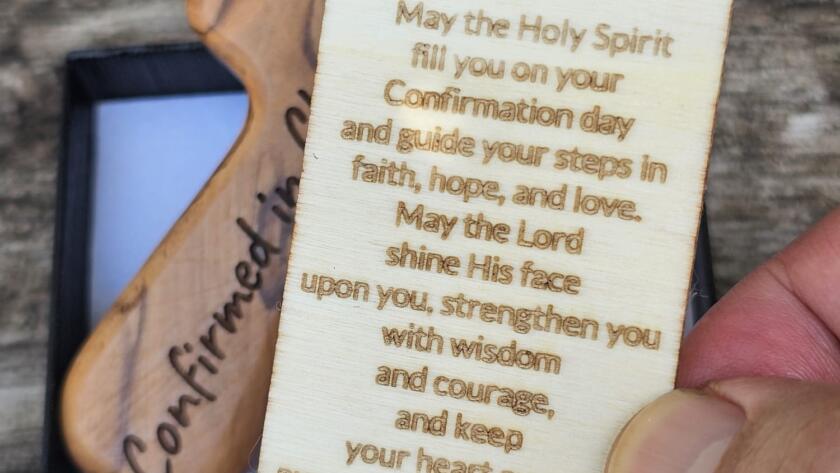 May the Holy Spirit
fill you on your
Confirmation day
and guide your steps in
faith, hope, and love.
May the Lord
shine His face
upon you, strengthen you
with wisdom
and courage,
and keep
your heart
Confirmed in